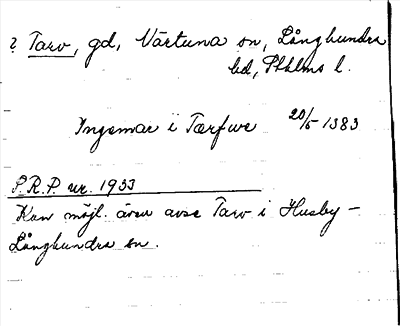 ? Tarv, gd, Närtuna sn, Långhundra
hd, Sthlms l.
Ingemar i Tærfwe 20/5 1383
S.R.P. nr. 1933
Kan möjl. även avse Tarv i Husby-
Långhundra sn.